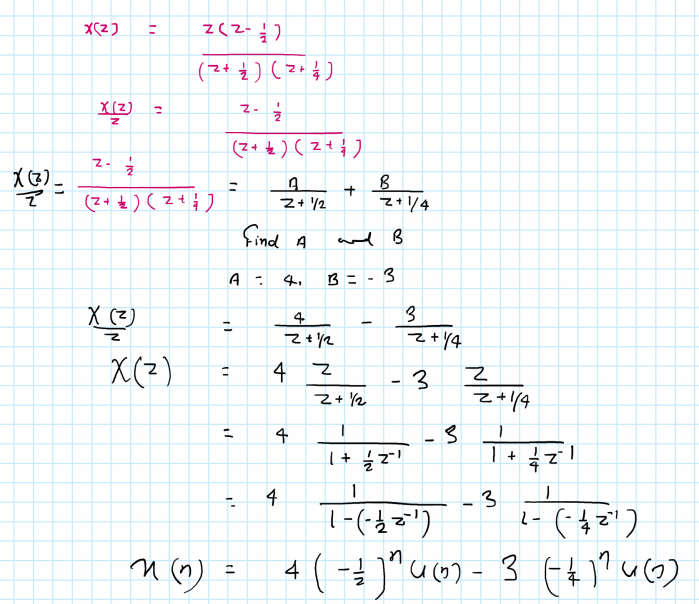 X(z) = z(z - 1/2) / (z + 1/2)(z + 1/4)
X(z)/z = z - 1/2 / (z + 1/2)(z + 1/4)
X(z)/z = z - 1/2 / (z + 1/2)(z + 1/4) = A/z + 1/2 + B/z + 1/4
Find A and B
A = 4. B = - 3
X(z)/z = 4/z + 1/2 - 3/z + 1/4
X(z) = 4 z/z + 1/2 - 3 z/z + 1/4
= 4 1/1 + 1/2 z⁻¹ - 3 1/1 + 1/4 z⁻¹
= 4 1/1 - (-1/2 z⁻¹) - 3 1/1 - (-1/4 z⁻¹)
x(n) = 4 (-1/2)ⁿ u(n) - 3 (-1/4)ⁿ u(n)